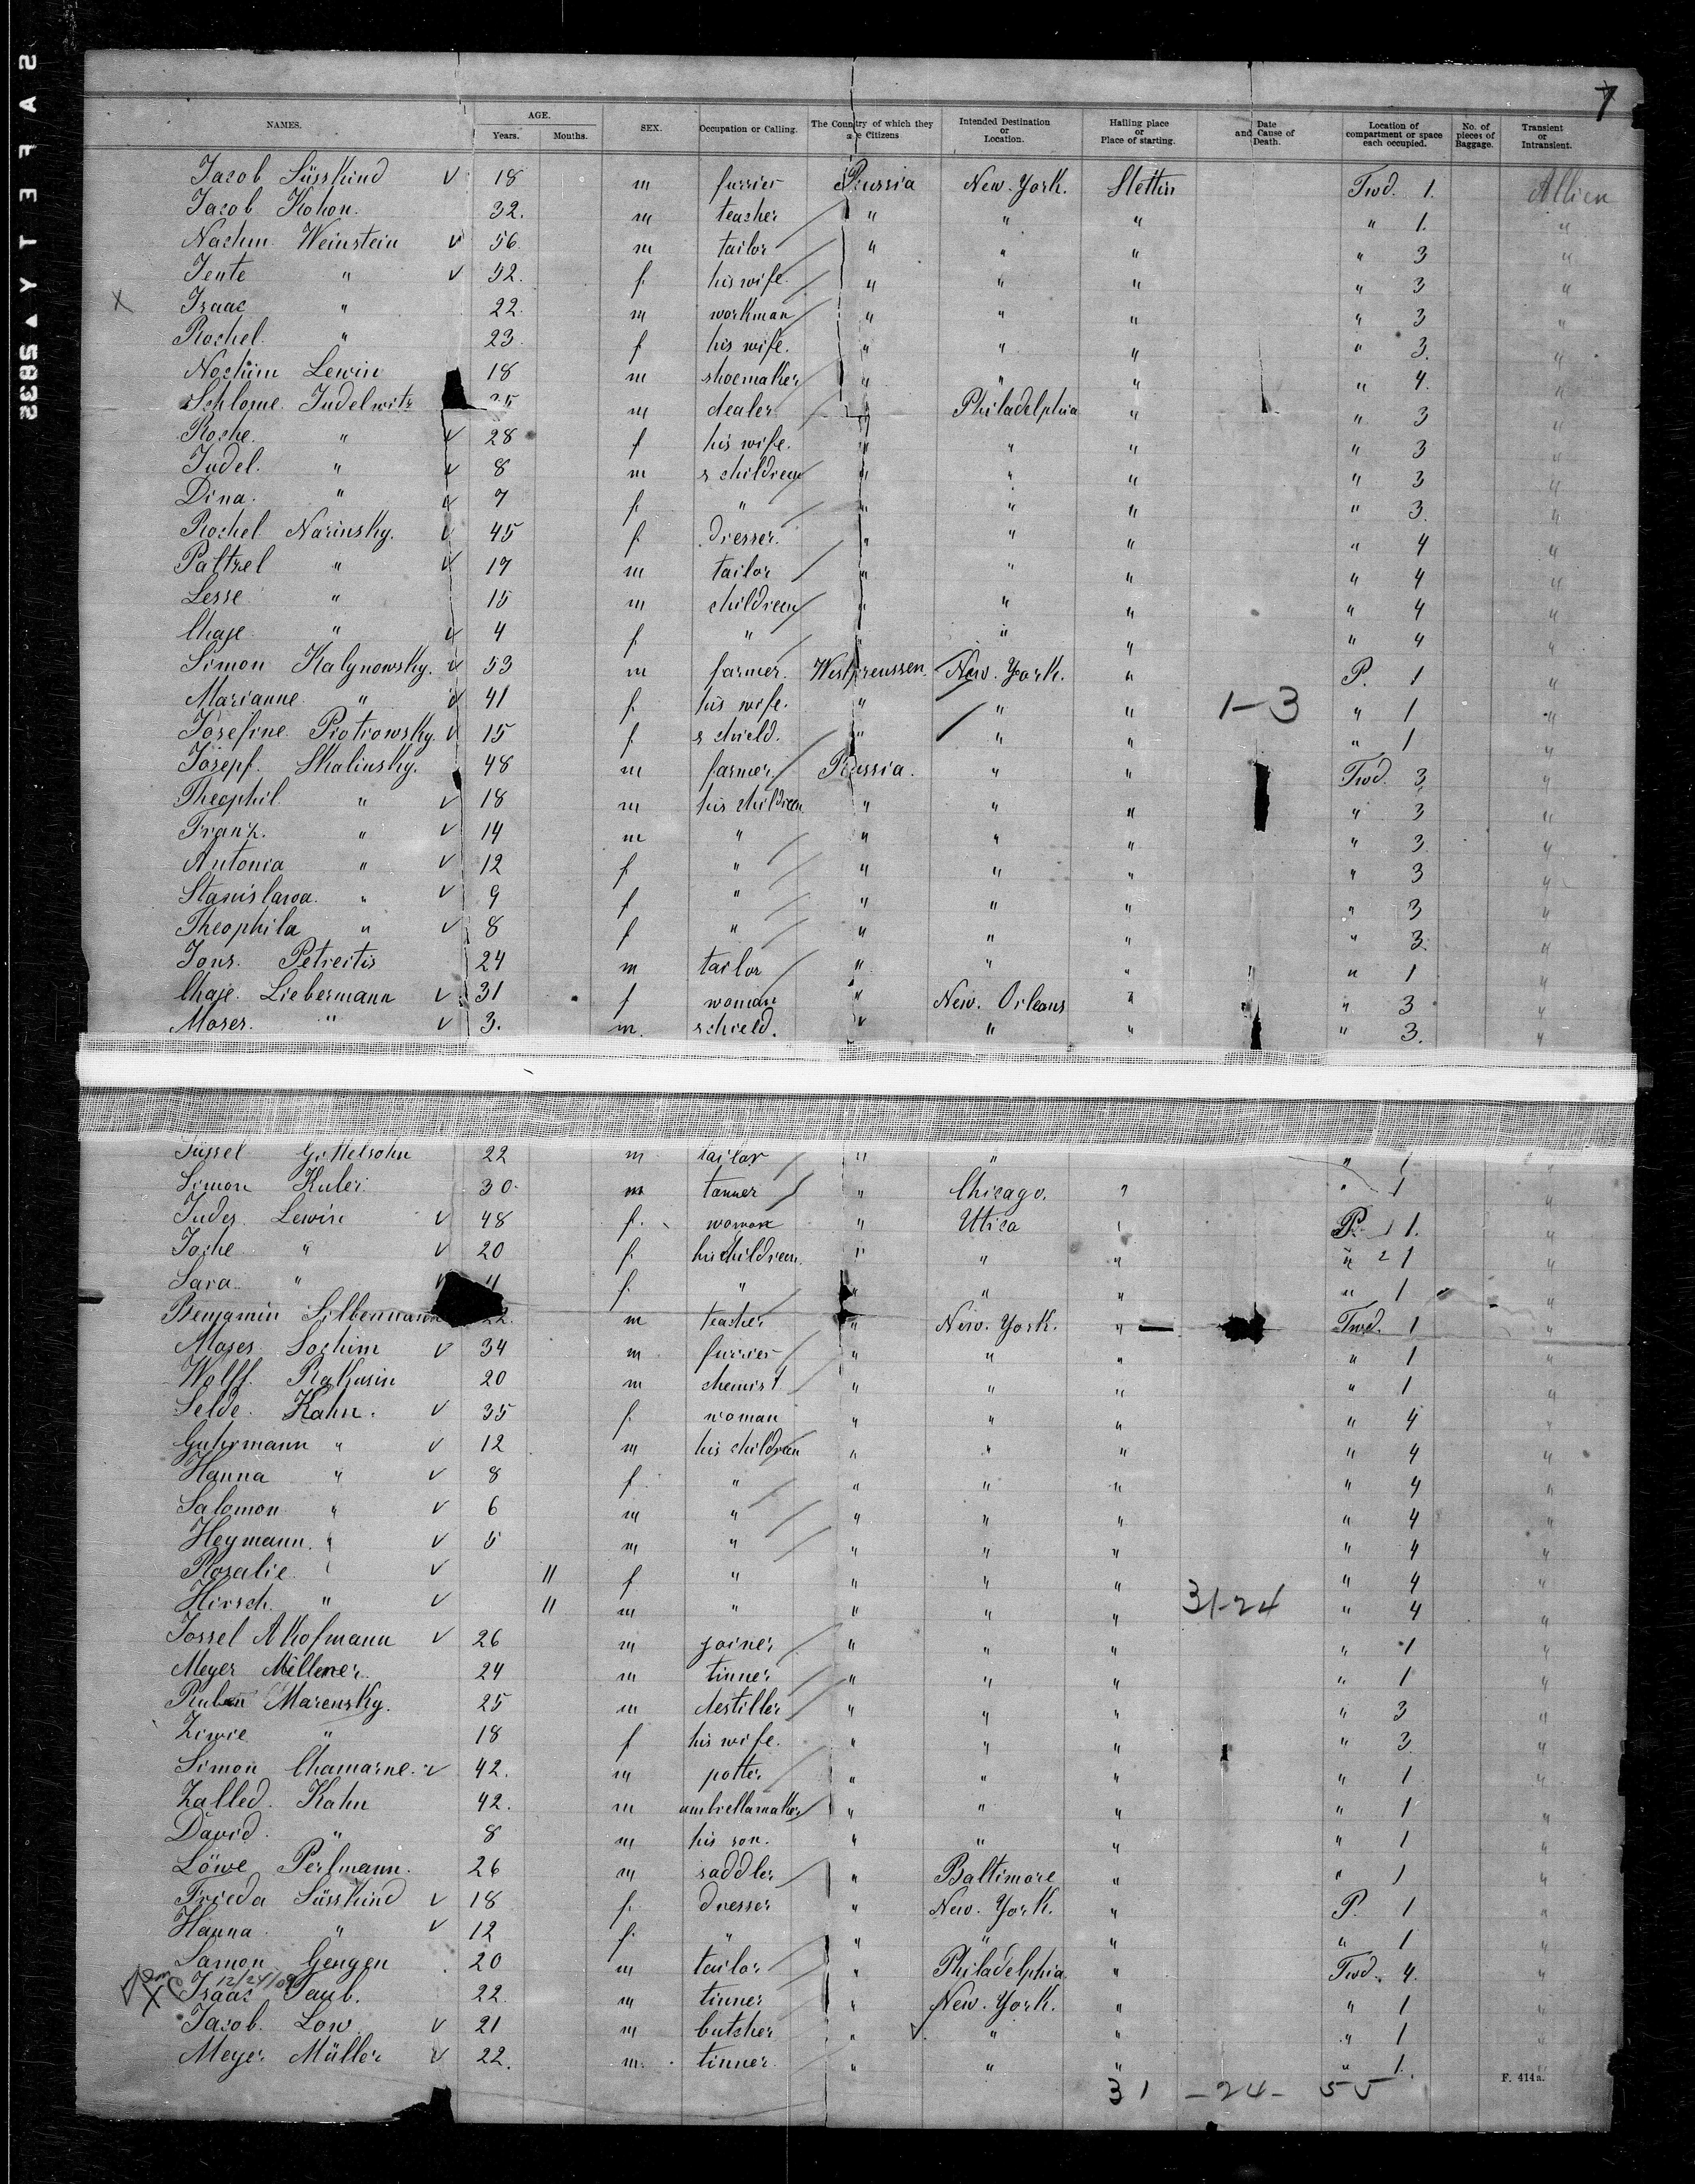 SAFETY▲S832
7
NAMES. AGE. Years. Months. SEX. Occupation or Calling. The Country of which they are Citizens Intended Destination or Location. Hailing place or Place of starting. Date and Cause of Death. Location of compartment or space each occupied. No. of pieces of Baggage. Transient or Intransient.
Jacob Süsskind v 18 m furrier Russia New-York. Stettin Twd. 1.
Jacob Kohon. 32. m teacher " " " " 1. "
Nachm. Weinstein v 56 m tailor " " " " 3 "
Jente " v 52. f. his wife. " " " " 3 "
X Isaac " 22. m workman " " " " 3 "
Rochel. " 23. f his wife. " " " " 3. "
Nochim Lewin 18 m shoemaker " " " " 4. "
Schlome Judelwitz m dealer " Philadelphia " " 3 "
Roche. " v 28 f his wife. " " " " 3 "
Judel. " v 8 m s children " " " " 3 "
Dina. " v 7 f. " " " " " 3. "
Rochel Narinsky. v 45 f. dresser. " " " " 4 "
Paltzel " v 17 m tailor " " " " 4 "
Lesse " 15 m children " " " " 4 "
Chaje " v 4 f. " " " " " 4 "
Simon Kalynowsky. v 53 m farmer. Westpreussen. New-York. " P. 1 "
Marianne " v 41 f. his wife. " " " 1-3 " 1 "
Josefine Piotrowsky. v 15 f. s chield. " " " " 1 "
Josepf. Skalinsky. 48 m farmer Russia. " " Twd. 3 "
Theophil. " v 18 m his children " " " " 3 "
Franz. " v 14 m " " " " " 3. "
Antonia " v 12 f. " " " " " 3 "
Stanislawa. " v 9 f " " " " " 3 "
Theophila " v 8 f " " " " " 3. "
Jons. Petreitis 24 m tailor " " " " 1 "
Chaje. Liebermann v 31 f woman " New-Orleans " " 3 "
Moses. " v 3. m. s chield. " " " " 3. "
Jüssel 22 m tailor " " " 1 "
Simon Kuler. 30. m tanner " Chicago. " " 1 "
Judes. Lewin v 48 f. woman " Utica " P. 1. "
Joche " v 20 f. his children. " " " " 2 1 "
Sara. " f. " " " " 1 "
Benjamin Silbermann 22. m teacher " New-York. " Twd. 1 "
Moses Sochim v 34 m furrier " " " " 1 "
Wolff. Rakusin 20 m chemist " " " " 1 "
Selde. Kahn. v 35 f. woman " " " " 4 "
Guhrmann " v 12 m his children " " " " 4 "
Hanna " v 8 f. " " " " " 4 "
Salomon " v 6 m " " " " " 4 "
Heymann. " v 5 m " " " " " 4 "
Rosalie. " v 11 f " " " " " 4 "
Hirsch. " v 11 m " " " " 31-24 " 4 "
Jossel Akofmann v 26 m joiner " " " " 1 "
Meyer Millener. 24 m tinner " " " " 1 "
Ruben Marensky. 25 m destiller " " " " 3 "
Ziwie " 18 f his wife. " " " " 3. "
Simon Chamarne. v 42. m potter " " " " 1 "
Zalled. Kahn 42. m umbrellamaker " " " " 1 "
David. " 8 m his son. " " " " 1 "
Löwe Perlmann. 26 m saddler " Baltimore " " 1 "
Frieda Süsskind v 18 f. dresser " New-York. " P. 1 "
Hanna. " v 12 f. " " " " " 1 "
Samon Gengen 20 m tailor " Philadelphia " Twd. 4. "
12/24/09
X Isaac Taub. 22. m tinner " New-York. " " 1 "
Jacob. Low v 21 m butcher " v " " " 1 "
Meyer Müller v 22. m. tinner " " " " 1. "
31 -24- 55
F. 414a.